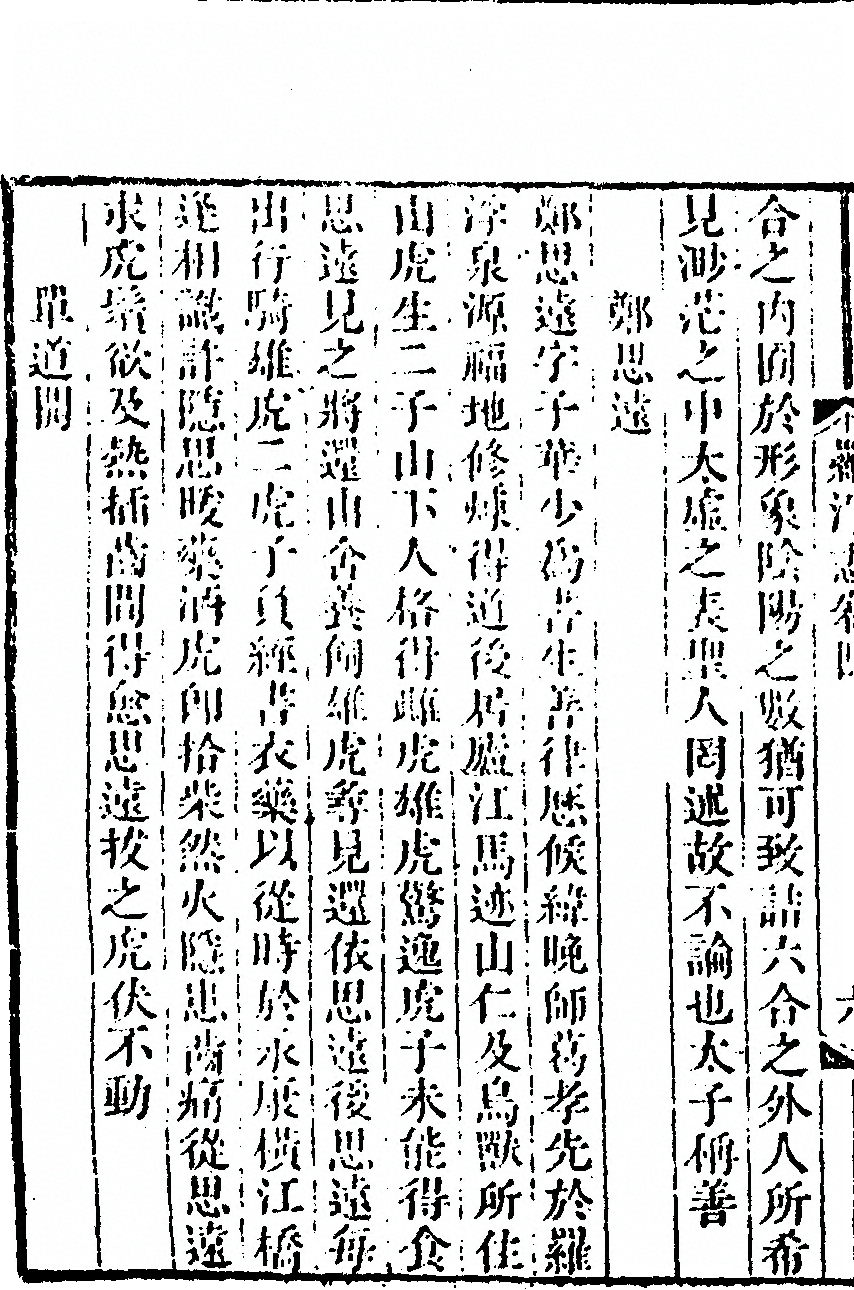 合之內囿於形象陰陽之數猶可致詰六合之外人所希
見渺茫之中太虛之表聖人罔述故不論也太子稱善
鄭思遠
鄭思遠字子華少為書生善律歷候緯晚師葛孝先於羅
浮泉源福地修煉得道後居廬江馬迹山仁及鳥獸所住
山虎生二子山下人格得雌虎雄虎驚逸虎子未能得食
思遠見之將還山舍養飼雄虎尋見還依思遠後思遠每
出行騎雄虎二虎子負經書衣藥以從時於永康橫江橋
逢相識許隱思暖藥酒虎即拾柴然火隱患齒痛從思遠
求虎鬚欲及熱插齒間得愈思遠拔之虎伏不動
單道開